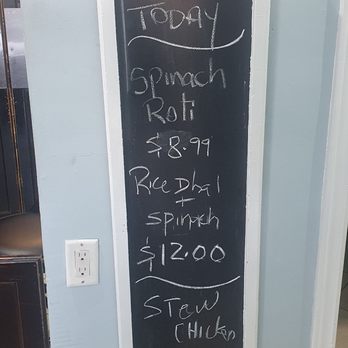 TODAY
Spinach
Roti
$8.99
Rice Dhal
+
Spinach
$12.00
STew
Chicken